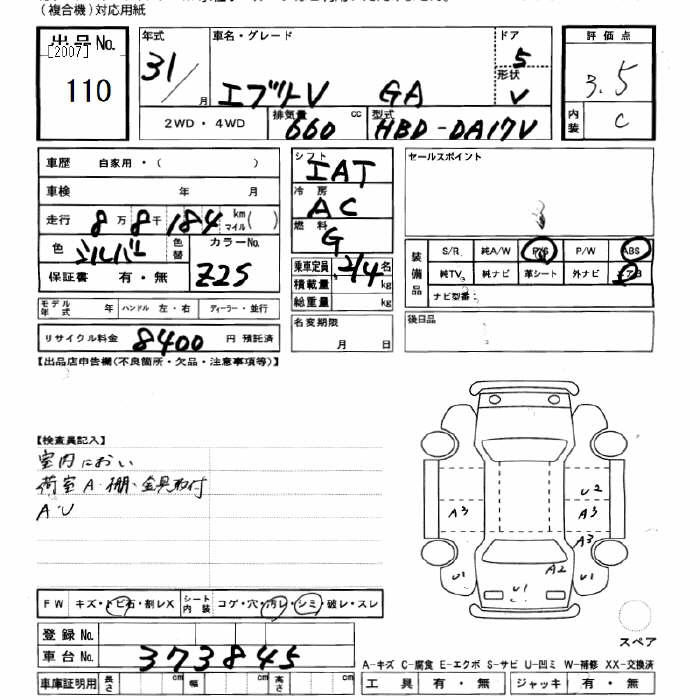 (複合機)対応用紙
出品No. [2007] 110
年式 31/ 月
車名・グレード エブリイV GA
ドア 5
形状 V
評価点 3.5
内装 C
2WD・4WD
排気量 660 cc
型式 HBD-DA17V
車歴 自家用・( )
車検 年 月
走行 8万8千184 km マイル( )
色 シルバー 色替 カラーNo. Z2S
保証書 有・無
モデル年式 年 ハンドル 左・右 ディーラー・並行
リサイクル料金 8400 円 預託済
シフト IAT
冷房 AC
燃料 G
乗車定員 2/4 名
積載量 kg
総重量 kg
名変期限 月 日
セールスポイント
装備品 S/R 純A/W P/S P/W ABS
純TV 純ナビ 革シート 外ナビ エアB
ナビ型番:
後日品
【出品店申告欄(不良箇所・欠品・注意事項等)】
【検査員記入】
室内におい
荷室A・棚・金具取付
A・U
U2
A3 A3
A3
U1 A2 U1
U1
FW キズ・トビ石・割レX シート内装 コゲ・穴・汚レ・シミ・破レ・スレ
登録No.
車台No. 373845
車庫証明用 長さ cm 幅 cm 高さ cm
スペア
A-キズ C-腐食 E-エクボ S-サビ U-凹ミ W-補修 XX-交換済
工具 有・無 ジャッキ 有・無